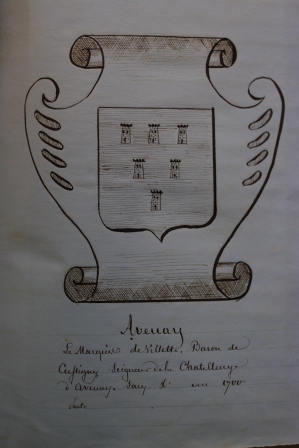 Avenay
Le Marquis de Villette, Baron de
Seigneur de la Chatellenie
d'Avenay en 1700